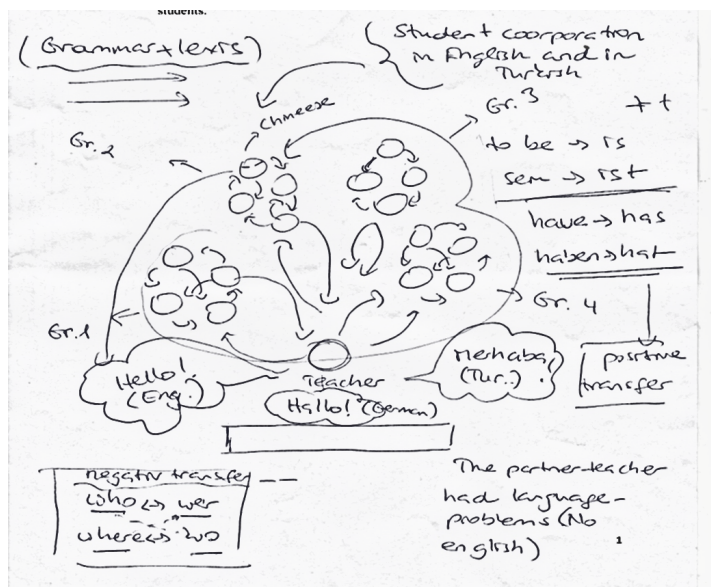 students.
(Grammar + lexis)
Student coorporation
in English and in
Turkish
Chineese
Gr. 3
++
Gr. 2
to be → is
sein → ist
have → has
haben → hat
Gr. 4
Gr. 1
positive
transfer
Hello!
(Eng.)
Merhaba!
(Tur..)
Teacher
Hallo! (German)
negativ transfer
who ↔ wer
where ↔ wo
The partner-teacher
had language-
problems (No
english)
1